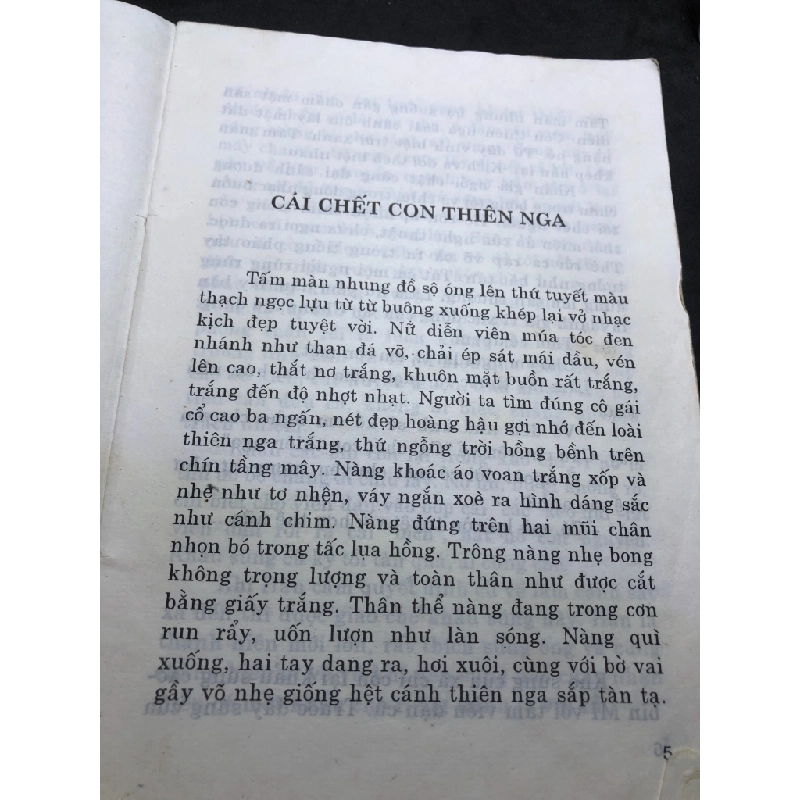 CÁI CHẾT CON THIÊN NGA
Tấm màn nhung đồ sộ óng lên thứ tuyết màu
thạch ngọc lựu từ từ buông xuống khép lại vở nhạc
kịch đẹp tuyệt vời. Nữ diễn viên múa tóc đen
nhánh như than đá vỡ, chải ép sát mái dầu, vén
lên cao, thắt nơ trắng, khuôn mặt buồn rất trắng,
trắng đến độ nhợt nhạt. Người ta tìm đúng cô gái
cổ cao ba ngấn, nét đẹp hoàng hậu gợi nhớ đến loài
thiên nga trắng, thứ ngỗng trời bồng bềnh trên
chín tầng mây. Nàng khoác áo voan trắng xốp và
nhẹ như tơ nhện, váy ngắn xoè ra hình dáng sắc
như cánh chim. Nàng đứng trên hai mũi chân
nhọn bó trong tấc lụa hồng. Trông nàng nhẹ bong
không trọng lượng và toàn thân như được cắt
bằng giấy trắng. Thân thể nàng đang trong cơn
run rẩy, uốn lượn như làn sóng. Nàng quì
xuống, hai tay dang ra, hơi xuôi, cùng với bờ vai
gầy võ nhẹ giống hệt cánh thiên nga sắp tàn tạ.
5